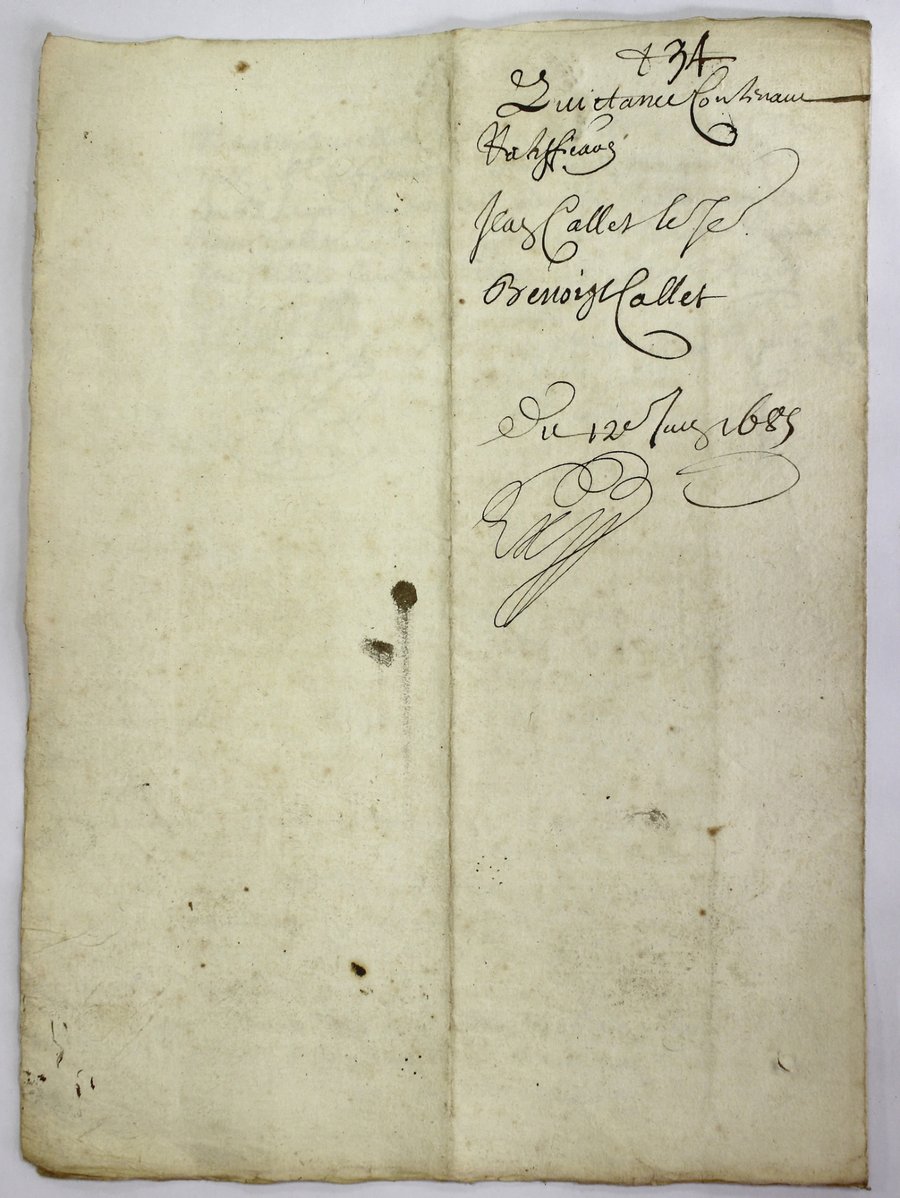 + 34
Quictance Contenant
Ratiffication
Jean Callet le Je
Benoist Callet
Du 12e Juin 1685
Exp